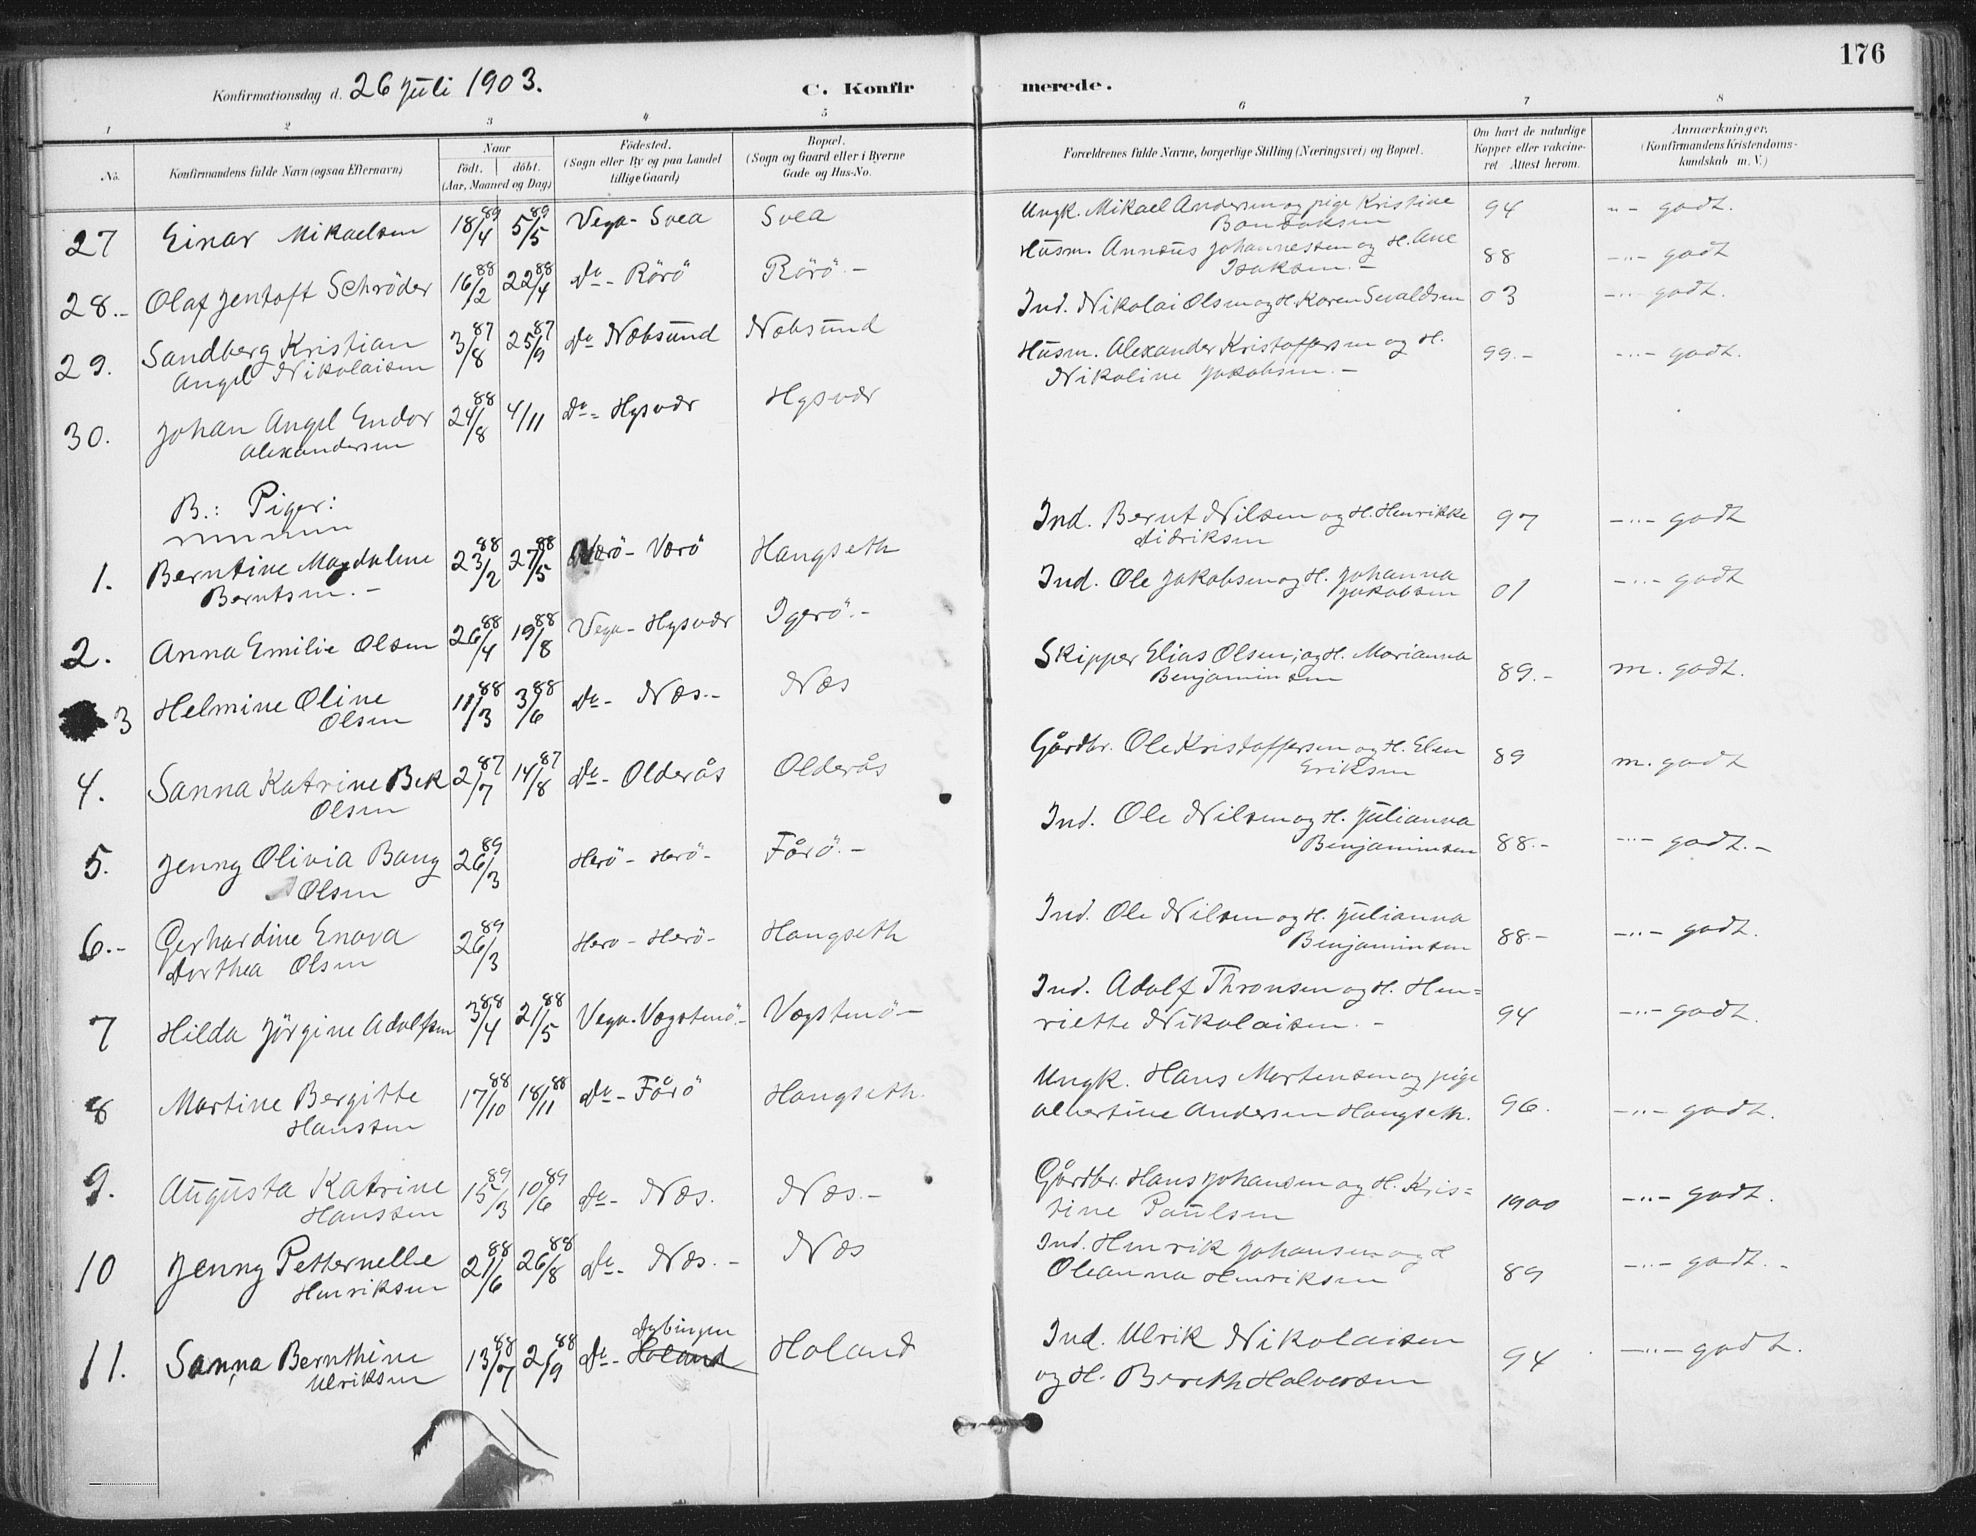 176
Konfirmationsdag d. 26 Juli 1903. C. Konfirmerede.
1 2 3 4 5 6 7 8
No. Konfirmandens fulde Navn (ogsaa Efternavn) Naar födt. döbt. (Aar, Maaned og Dag) Födested. (Sogn eller By og paa Landet tillige Gaard) Bopæl. (Sogn og Gaard eller i Byerne Gade og Hus-No. Forældrenes fulde Navne, borgerlige Stilling (Næringsvei) og Bopæl. Om havt de naturlige Kopper eller vaccineret Attest herom. Anmærkninger. (Konfirmandens Kristendomskundskab m. V.)
27 Einar Mikaelsen 18/4 89 5/5 89 Vega - Svea Svea Ungk. Mikael Andersen og pige Kristine 94 -"- godt.
28.- Olaf Jentoft Schröder 16/2 88 22/4 88 Do - Rörö Rörö.- Husm. Annæus Johannessen og H. Ane
Isaksen.- 88 -"- godt
29. Sandberg Kristian
Angel Nikolaisen 3/8 87 25/9 87 Do Næbsund Næbsund Ind. Nikolai Olsen og H. Karen Sevaldsen 03 -"- godt.
30. Johan Angel Endor
Alexandersen 24/8 88 4/11 Do - Hysvær Hysvær Husm. Alexander Kristoffersen og H.
Nikoline Jakobsen.- 99.- -"- godt.
B.: Piger:
1. Berntine Magdaline
Berntsen.- 23/2 88 27/5 88 Værö - Værö Hangseth Ind. Bernt Nilsen og H. Henrikke
Didriksen 97 -"- godt
2. Anna Emilie Olsen 26/4 88 19/8 88 Vega - Hysvær Igerö.- Ind. Ole Jakobsen og H. Johanna
Jakobsen 01 -"- godt
3 Helmine Oline
Olsen 11/3 88 3/6 88 Do - Næs.- Næs Skipper Elias Olsen, og H. Marianna
Benjaminsen 89.- m. godt.
4. Sanna Katrine Bek
Olsen 2/7 87 14/8 87 Do - Olderås Olderås Gårdbr. Ole Kristoffersen og H. Elen
Eriksen 89 m. godt
5. Jenny Olivia Bang
Olsen 26/3 89 Herö - Herö- Fårö.- Ind. Ole Nilsen og H. Julianna
Benjaminsen 88.- -"- godt.-
6.- Gerhardine Enova
Dorthea Olsen 26/3 89 Herö - Herö- Hangseth Ind. Ole Nilsen og H. Julianna
Benjaminsen 88.- -"- godt.
7 Hilda Jörgine Adolfsen 3/4 88 21/5 88 Vega. Vægstenö.- Vægstenö- Ind. Adolf Thronsen og H. Hen=
riette Nikolaisen.- 94 -"- godt.
8 Martine Bergitte
Hanssen 17/10 88 18/11 88 Do - Fårö Hangseth. Ungk. Hans Mortensen og pige
Albertine Andersen Hangseth. 96. -"- godt.
9. Augusta Katrine
Hanssen 15/3 89 10/6 89 Do - Næs. Næs.- Gårdbr. Hans Johansen og H. Kris=
tine Paulsen 1900 -"- godt.
10 Jenny Petternelle
Henriksen 21/6 88 26/8 88 Do - Næs.- Næs Ind. Henrik Johansen og H
Oleanna Henriksen 89 -"- godt.-
11. Sanna Bernthine
Ulriksen 13/7 88 2/9 88 Do - Holand Holand Ind. Ulrik Nikolaisen
og H. Bereth Halvorsen 94 -"- godt.